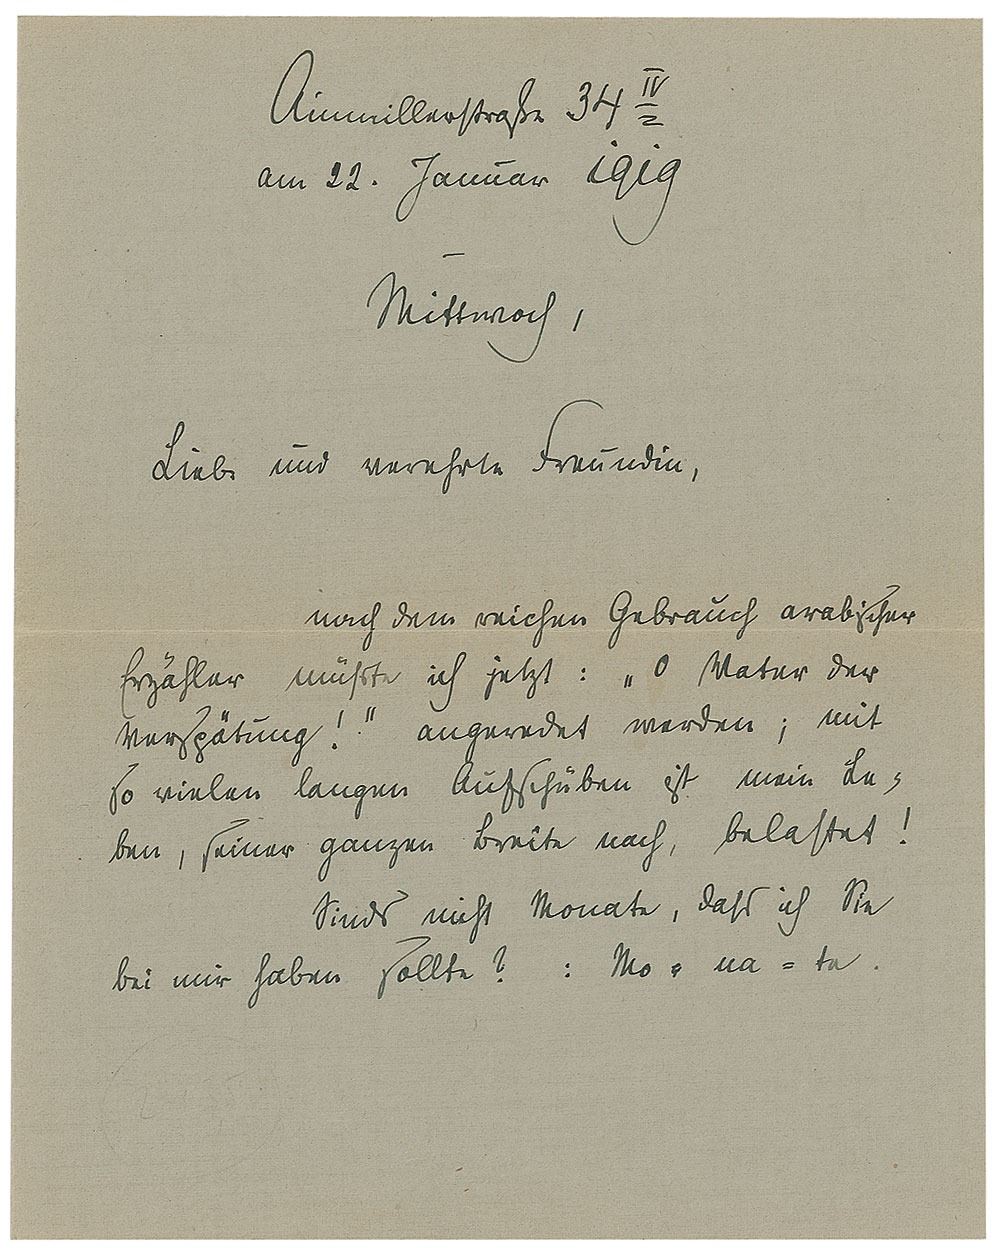 Ainmillerstraße 34 IV
am 22. Januar 1919
Mittwoch,
Liebe und verehrte Freundin,
nach dem reichen Gebrauch arabischer
Erzähler müßte ich jetzt: „O Vater der
Verspätung!" angeredet werden; mit
so vielen langen Aufschüben ist mein Le-
ben, seiner ganzen Breite nach, belastet!
Sinds nicht Monate, daß ich Sie
bei mir haben sollte? : Mo = na = te.